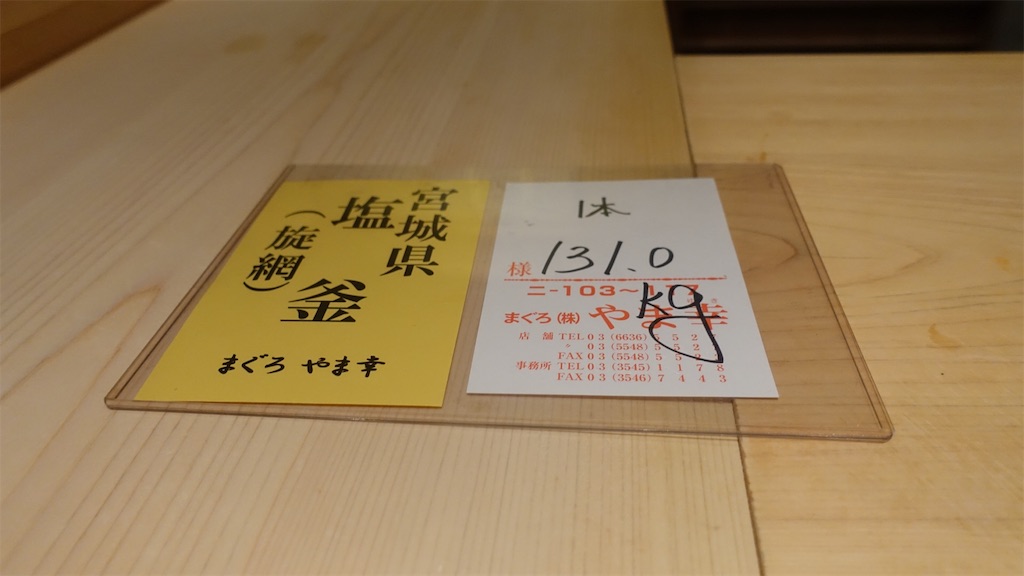 宮城県
塩釜
（旋網）
まぐろ やま幸
1本
様 131.0
kg
ニ-103～177
まぐろ（株）やま幸
店舗 TEL03(6636)
03(5548)
FAX03(5548)
事務所 TEL03(3545)1178
FAX03(3546)7443